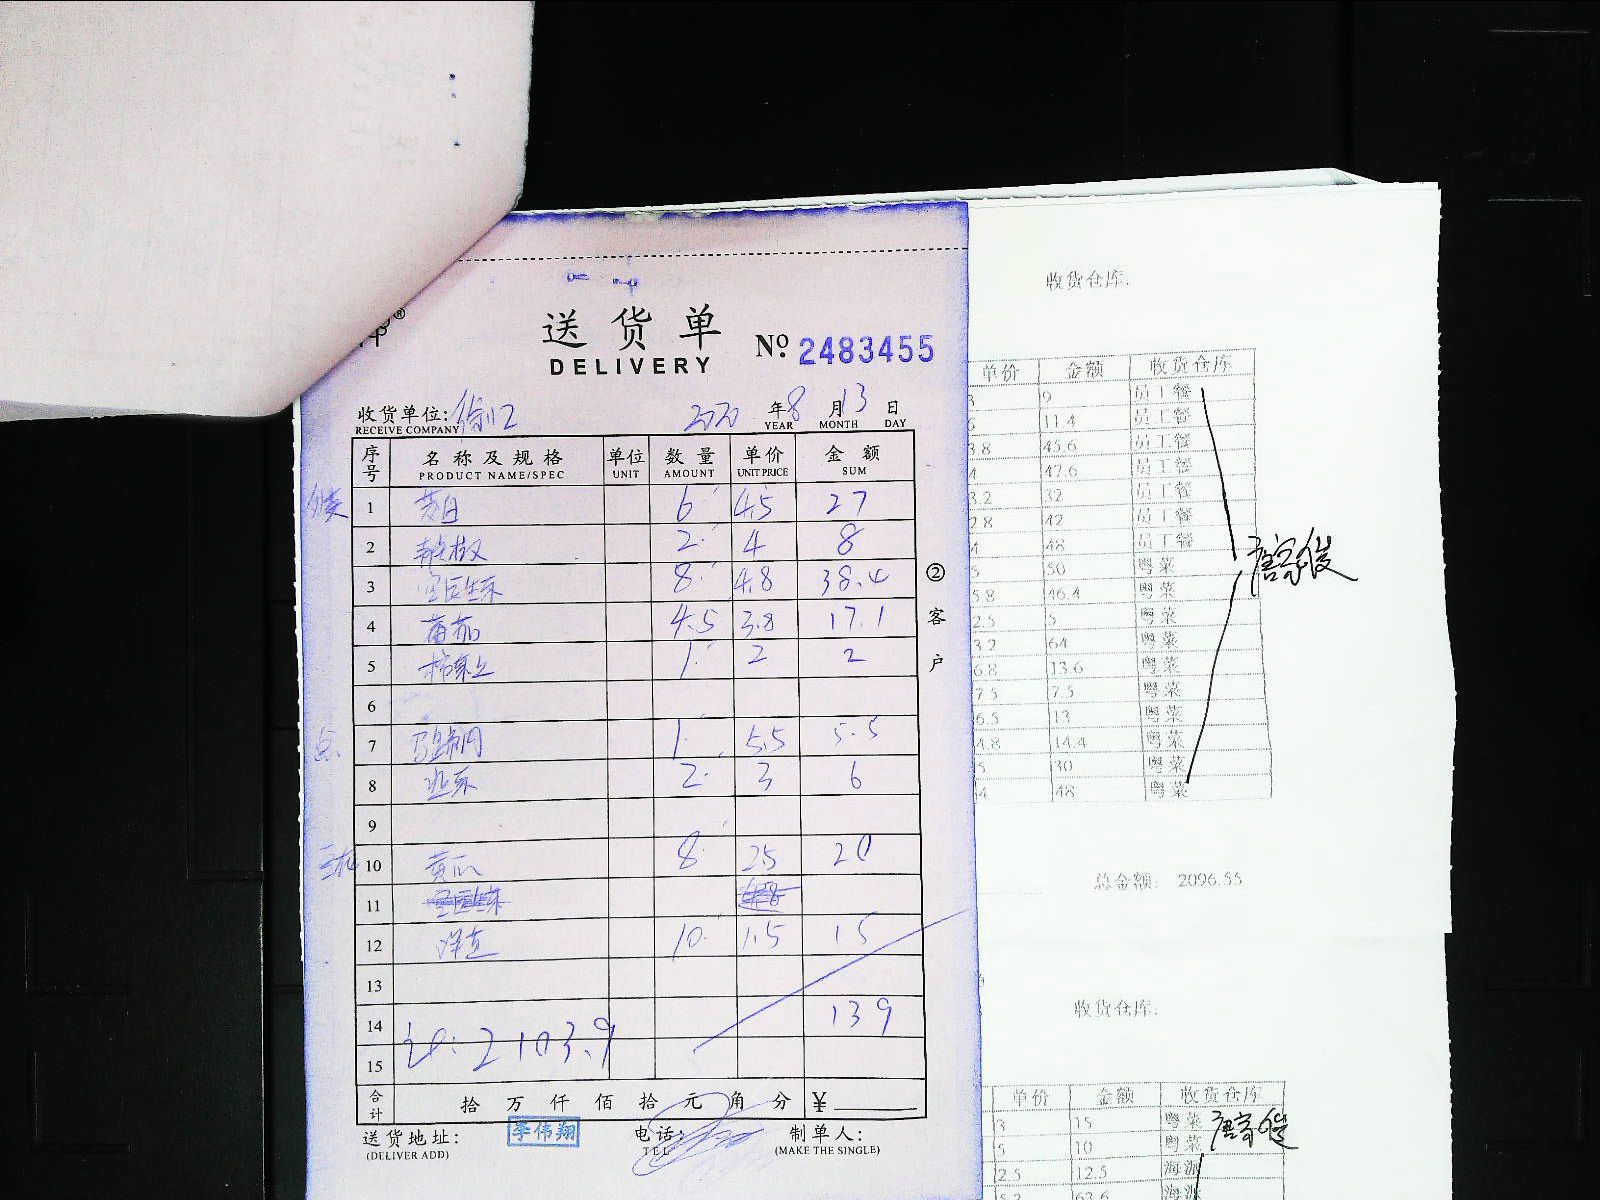 送货单
DELIVERY
№ 2483455
收货单位: 徐汇 2020 年 8 月 13 日
RECEIVE COMPANY YEAR MONTH DAY
序号 名称及规格 单位 数量 单价 金额
PRODUCT NAME/SPEC UNIT AMOUNT UNIT PRICE SUM
1 茭白 6 4.5 27
2 2 4 8
3 8 4.8 38.4
4 蕃茄 4.5 3.8 17.1
5 1 2 2
6
点 7 1 5.5 5.5
8 2 3 6
9
10 黄瓜 8 2.5 20
11
12 洋芋 10 1.5 15
13
14 139
2103.9
15
合计 拾 万 仟 佰 拾 元 角 分 ¥
送货地址: 李伟翔 电话: 制单人:
(DELIVER ADD) TEL (MAKE THE SINGLE)
②客户
收货仓库:
单价 金额 收货仓库
3 9 员工餐
6 11.4 员工餐
3.8 45.6 员工餐
4 47.6 员工餐
3.2 32 员工餐
2.8 42 员工餐
4 48 员工餐
5 50 粤菜
5.8 46.4 粤菜
2.5 5 粤菜
3.2 64 粤菜
6.8 13.6 粤菜
7.5 7.5 粤菜
6.5 13 粤菜
4.8 14.4 粤菜
5 30 粤菜
4 48 粤菜
总金额: 2096.55
收货仓库:
单价 金额 收货仓库
3 15 粤菜
5 10 粤菜
2.5 12.5 海派
5.2 63.6 海派